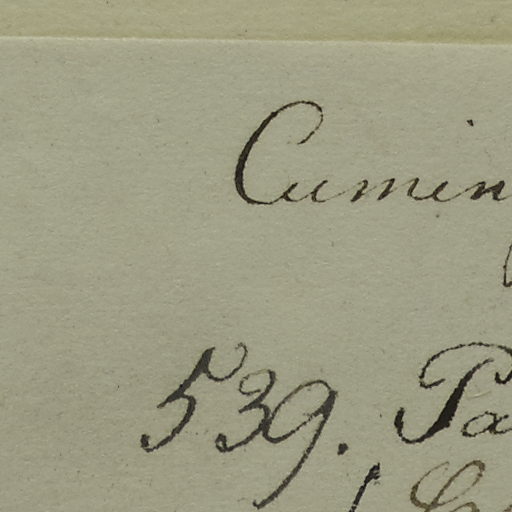 Cumin
539. Pa